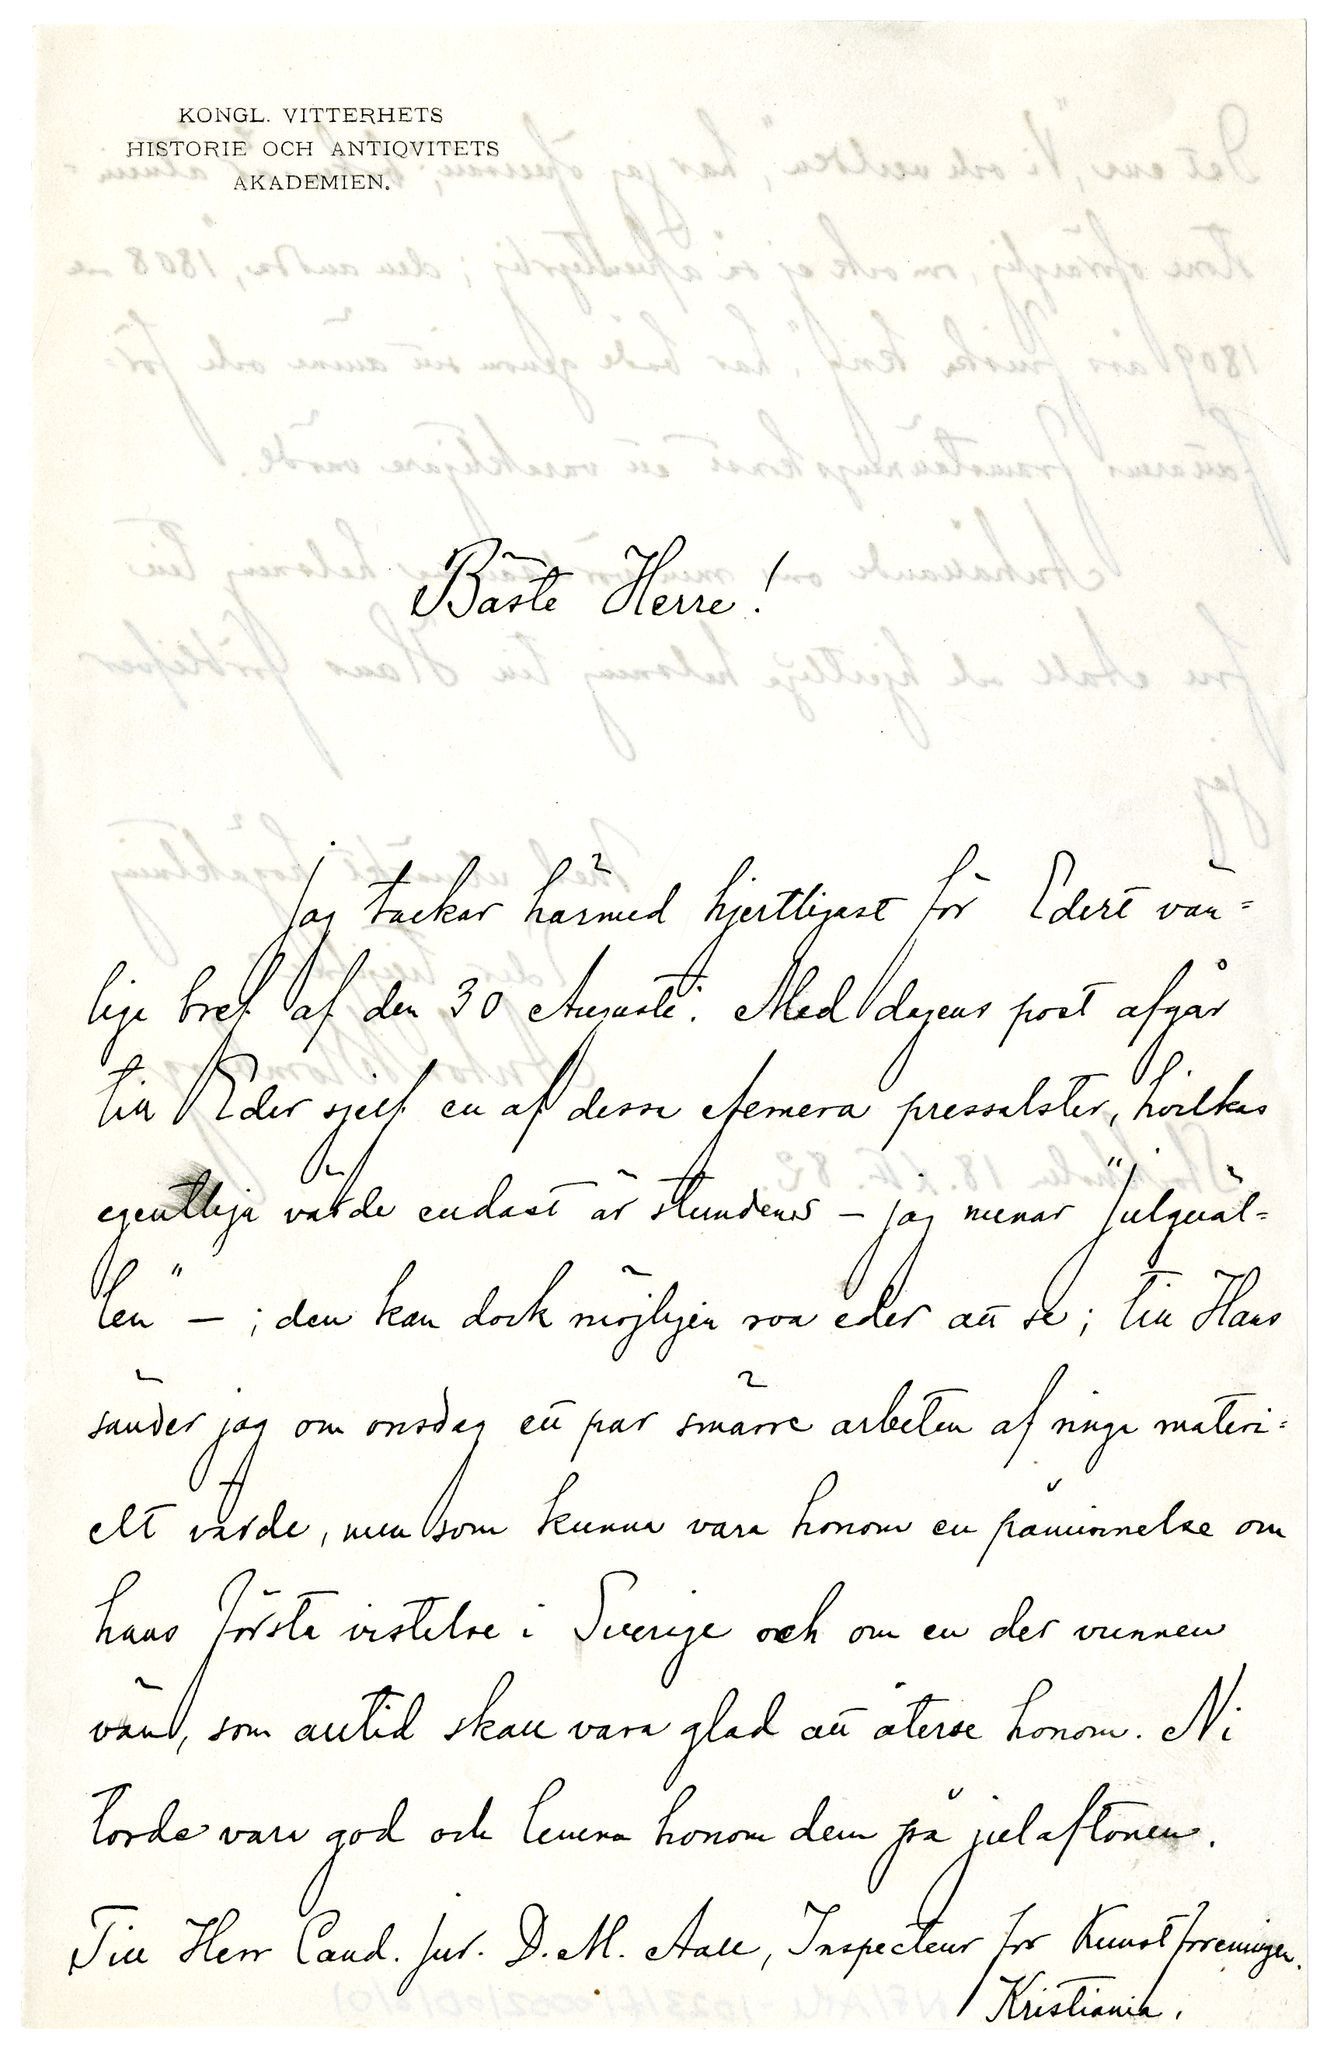 KONGL. VITTERHETS
HISTORIE OCH ANTIQVITETS
AKADEMIEN.
Bäste Herre!
Jag tackar härmed hjertligast för Edert vän=
liga bref af den 30 Augusti. Med dagens post afgår
till Eder sjelf en af dessa efemera pressalster, hvilkas
egentliga värde endast är stundens – jag menar "Julqväl=
len" – ; den kan dock möjligen roa eder att se; till Hans
sänder jag om onsdag ett par smärre arbeten af ringa materi=
elt värde, men som kunna vara honom en påminnelse om
hans första vistelse i Sverige och om en der vunnen
vän, som alltid skall vara glad att återse honom. Ni
torde vara god och lemna honom dem på julaftonen.
Till Herr Cand. jur. D. M. Aall, Inspecteur for Kunstforeningen.
Kristiania.